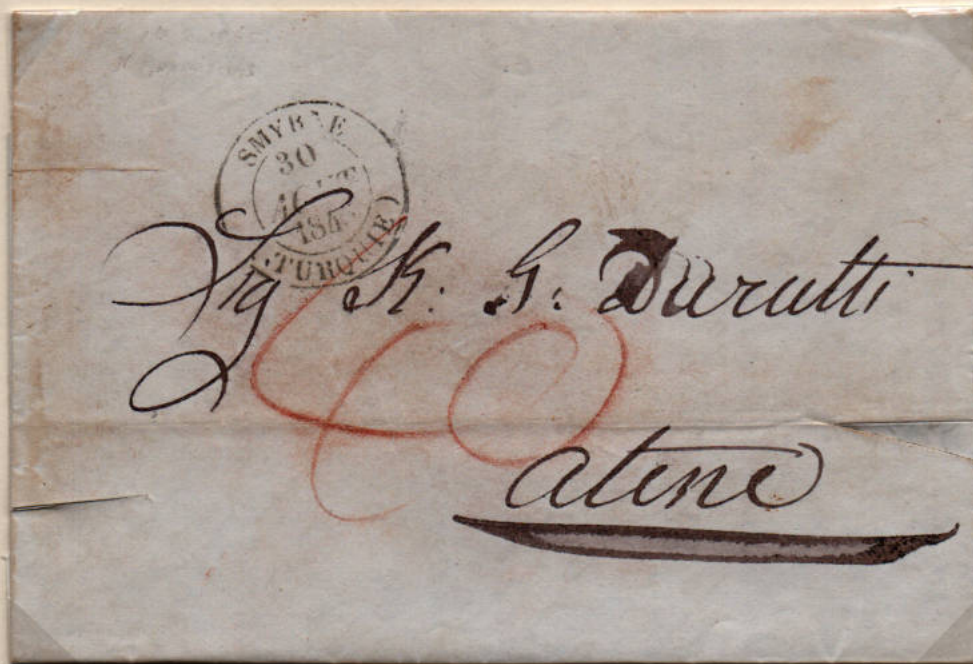 SMYRNE
30
AOUT
TURQUIE
Sig K. G. Durutti
Atene
40